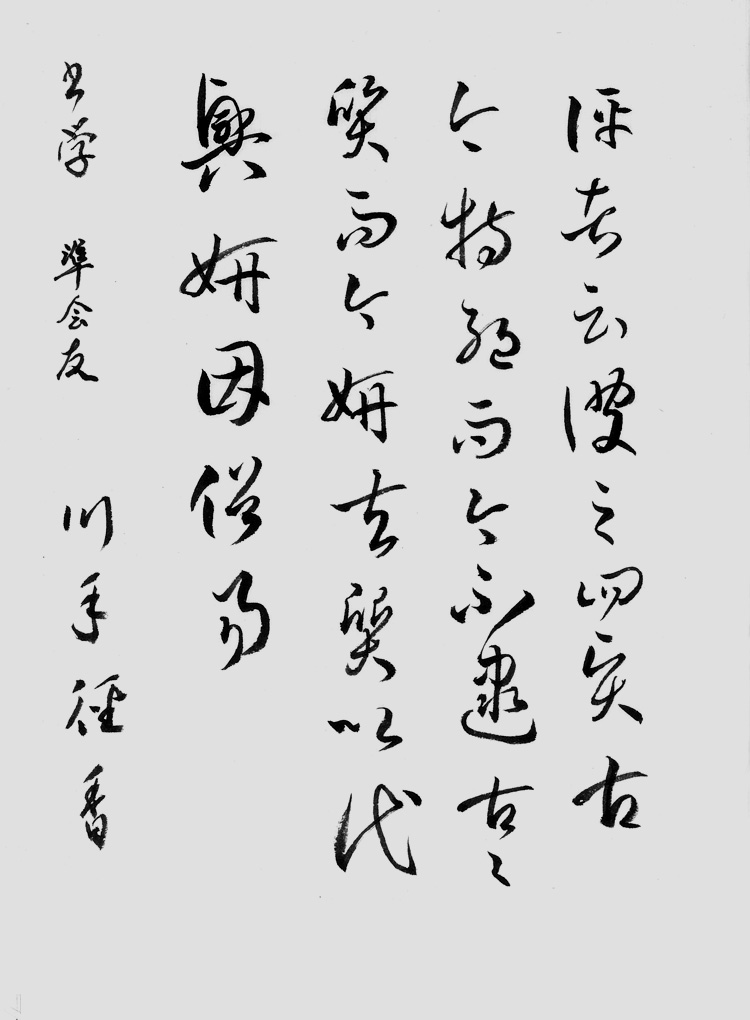 評者云彼之四賢古
今特絶而今不逮古〻
質而今妍夫質以代
興妍因俗易
書学 準会友 川手径香